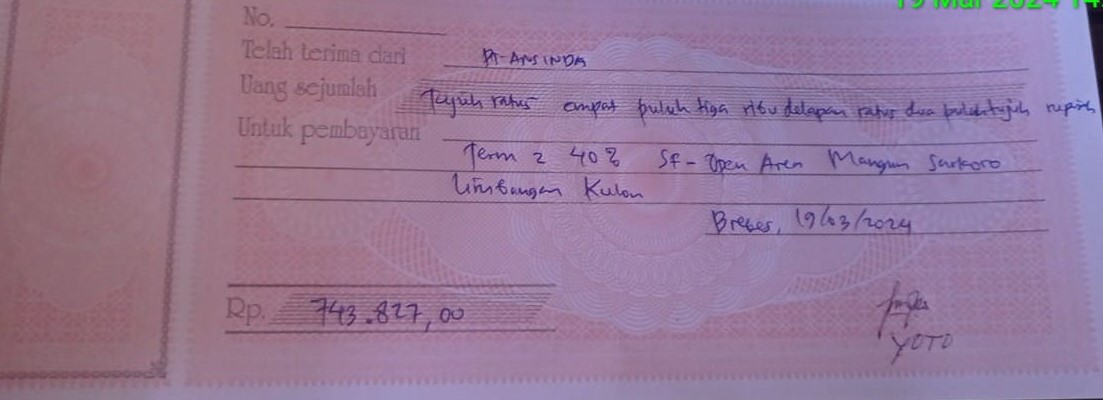 19 Mar 2024 14
No.
Telah terima dari PT-ANSINDA
Uang sejumlah Tujuh ratus empat puluh tiga ribu delapan ratus dua puluh tujuh rupiah
Untuk pembayaran
Term 2 40% SF-Open Aren Mangun Sarkoro
Limbangan Kulon
Brebes, 19/03/2024
Rp. 743.827,00
YOTO